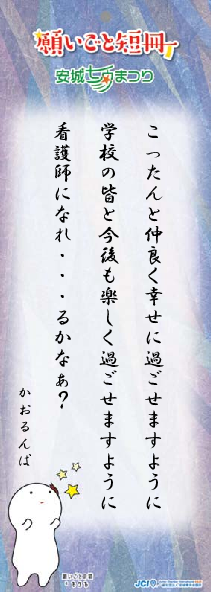 願いごと短冊
安城七夕まつり
こったんと仲良く幸せに過ごせますように
学校の皆と今後も楽しく過ごせますように
看護師になれ・・・るかなぁ?
かおるんば
願いごと短冊
JCI